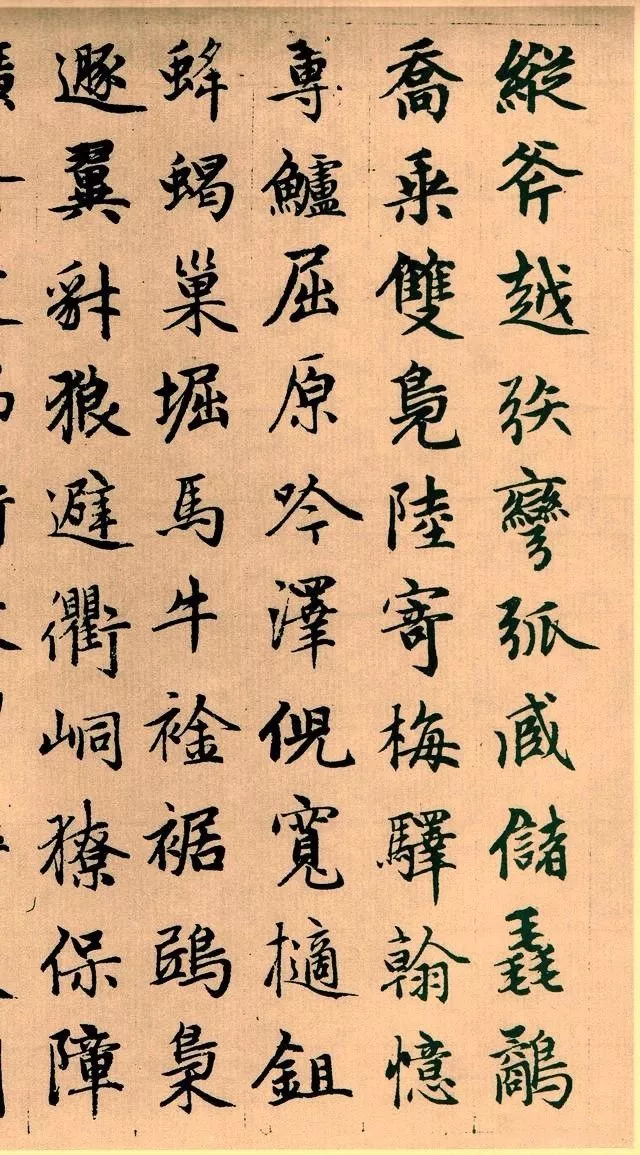 縱斧越彎弧儲毳鷸
喬乘雙鳧陸寄梅驛翰憶
專鱸屈原吟澤倪寬樀鉏
蜂蝎巢堀馬牛裾鴟梟
遯翼豺狼避衢峒獠保障